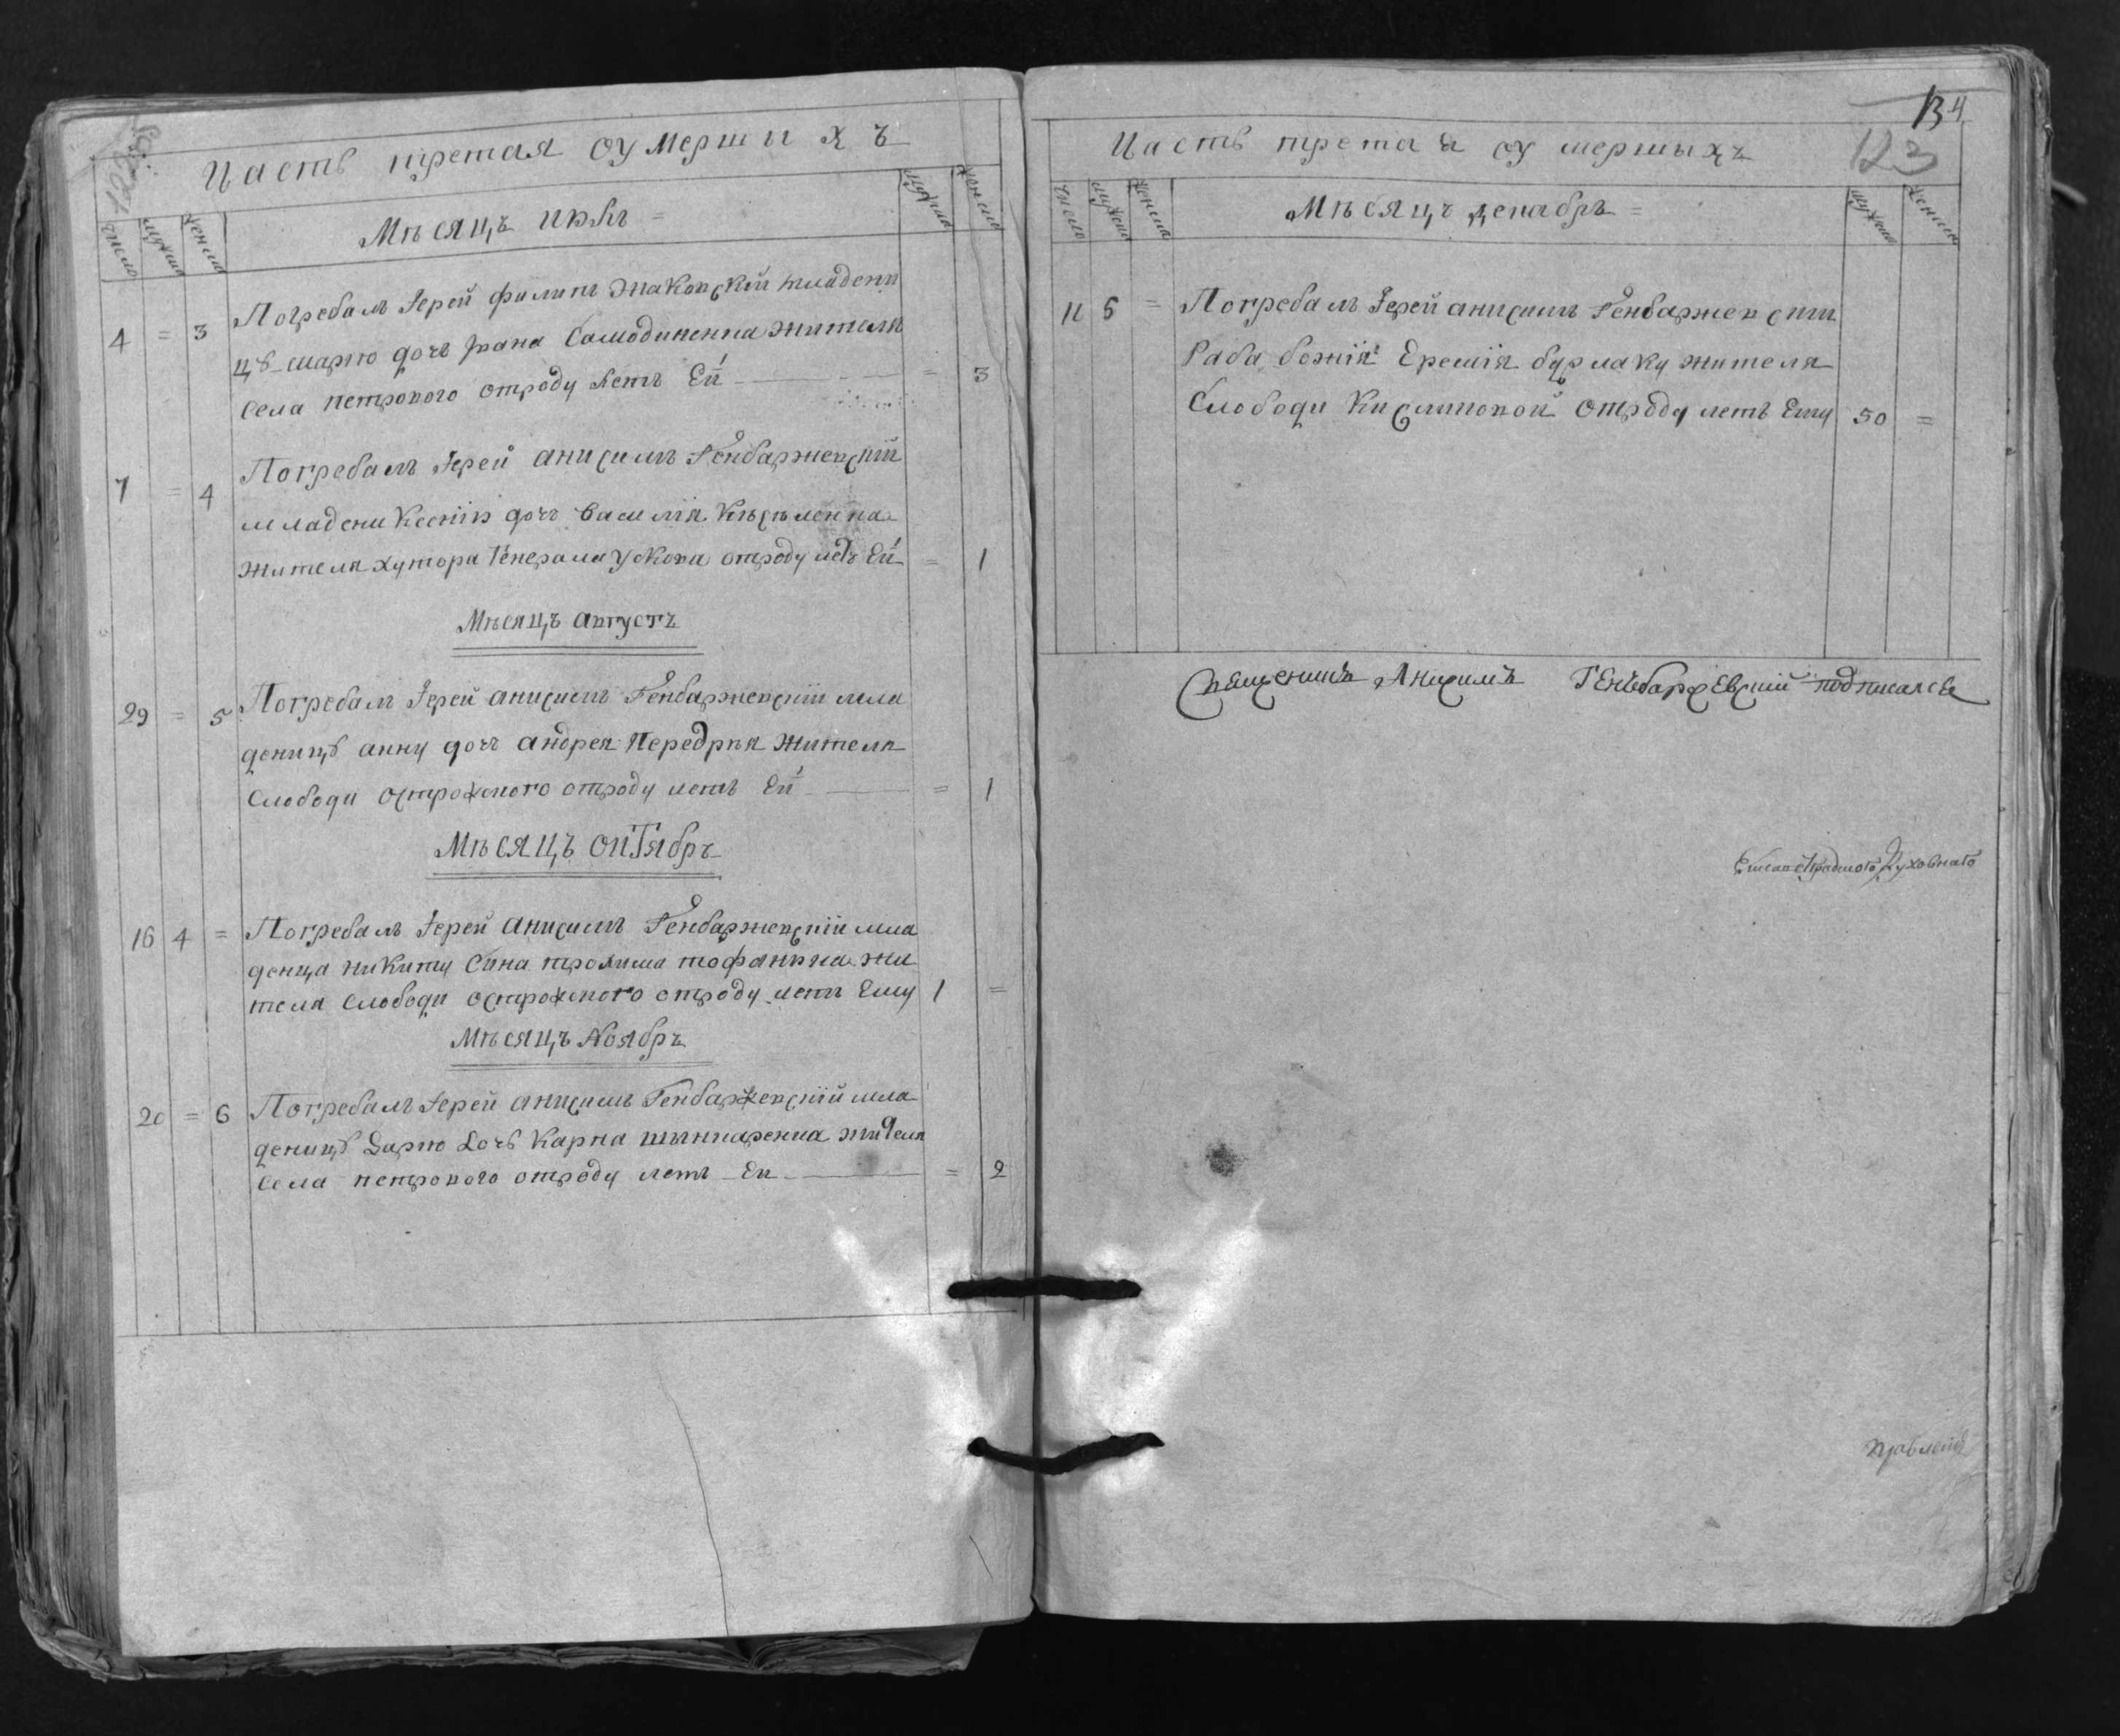 Часть третая оумершихъ
число мужска женска
Мѣсяцъ июль =
мужска женска
4 = 3 Погребалъ Іерей филипъ Маковскій младени
цъ марію дочь ивана Самодиненка жителя
села петрового отроду летъ Ей = 3
7 = 4 Погребалъ Іерей анисимъ Генбаржевскій
младени Ксенію дочь василія Кѣсѣленка
жителя хутора Генерала Ускова отроду летъ Ей = 1
Мѣсяцъ августъ
29 = 5 Погребалъ Іерей анисимъ Генбаржевскій мла
деницъ анну дочь андрея Передрѣя жителя
слободи острожского отроду летъ Ей = 1
Мѣсяцъ октябръ
16 4 = Погребалъ Іерей анисимъ Генбаржевскій мла
денца никиту сина трохима тофанюка жи
теля слободи острожского отроду летъ Ему 1 =
Мѣсяцъ Ноябръ
20 = 6 Погребалъ Іерей анисимъ Генбаржевскій мла
деницъ Дарію Дочь Карпа шынкаренка жителя
села петрового отроду летъ Ей = 2
134
123
Часть третая оумершыхъ
число мужска женска
Мѣсяцъ декабръ =
мужска женска
11 5 = Погребалъ Іерей анисимъ Генбаржевскій
Раба божія Еремія бурлаку жителя
Слободи Кислиповой отроду летъ Ему 50 =
Священникъ Анисимъ Генъбаржевскій подписался
Елисаветградского Духовнаго
правленія